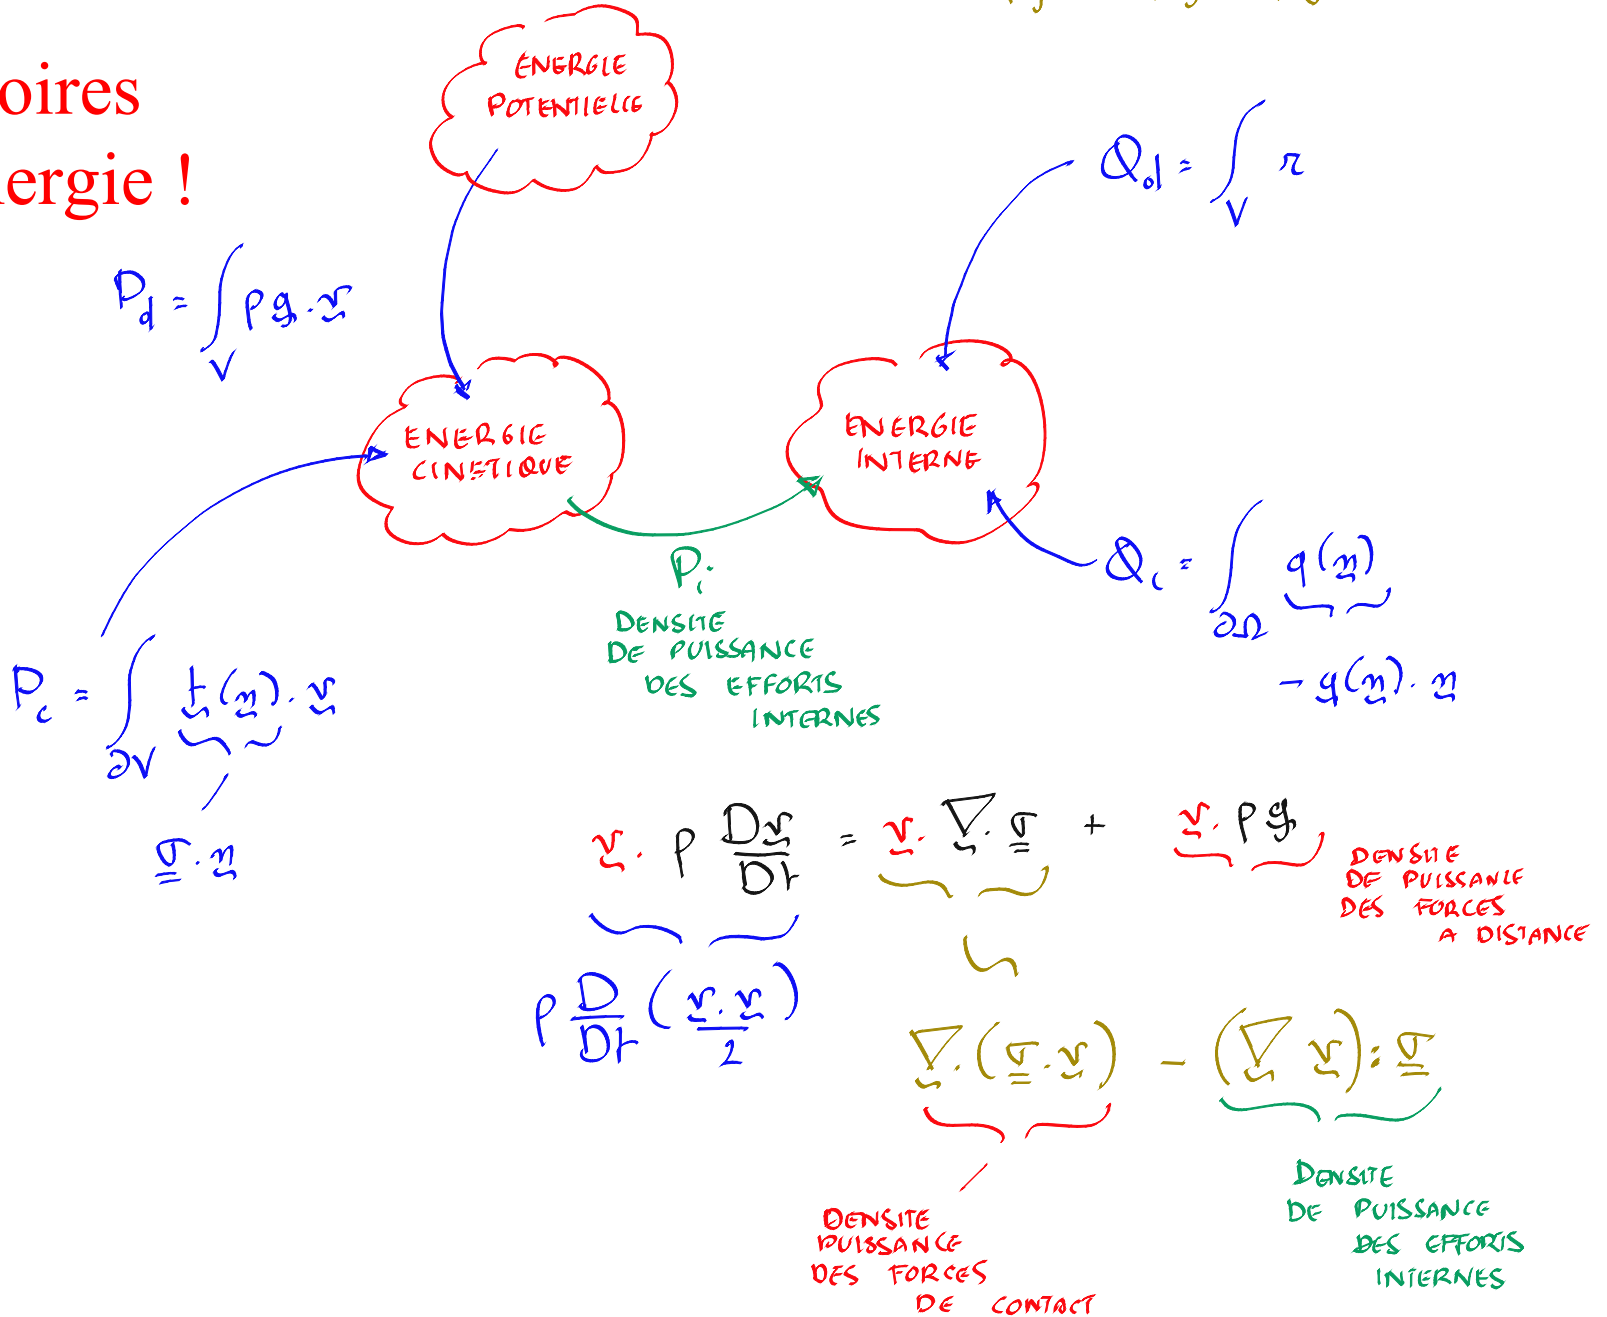 oires
ergie !
ENERGIE
POTENTIELLE
Q_d = ∫_V r
P_d = ∫_V ρ g . v
ENERGIE
CINETIQUE
ENERGIE
INTERNE
P_i
DENSITE
DE PUISSANCE
DES EFFORTS
INTERNES
Q_c = ∫_∂Ω q(n)
- q(n) . n
P_c = ∫_∂V t(n) . v
σ . n
v . ρ Dv/Dt = v . ∇ . σ + v . ρ g
DENSITE
DE PUISSANCE
DES FORCES
A DISTANCE
ρ D/Dt ( v . v / 2 )
∇ . ( σ . v ) - ( ∇ v ) : σ
DENSITE
PUISSANCE
DES FORCES
DE CONTACT
DENSITE
DE PUISSANCE
DES EFFORTS
INTERNES